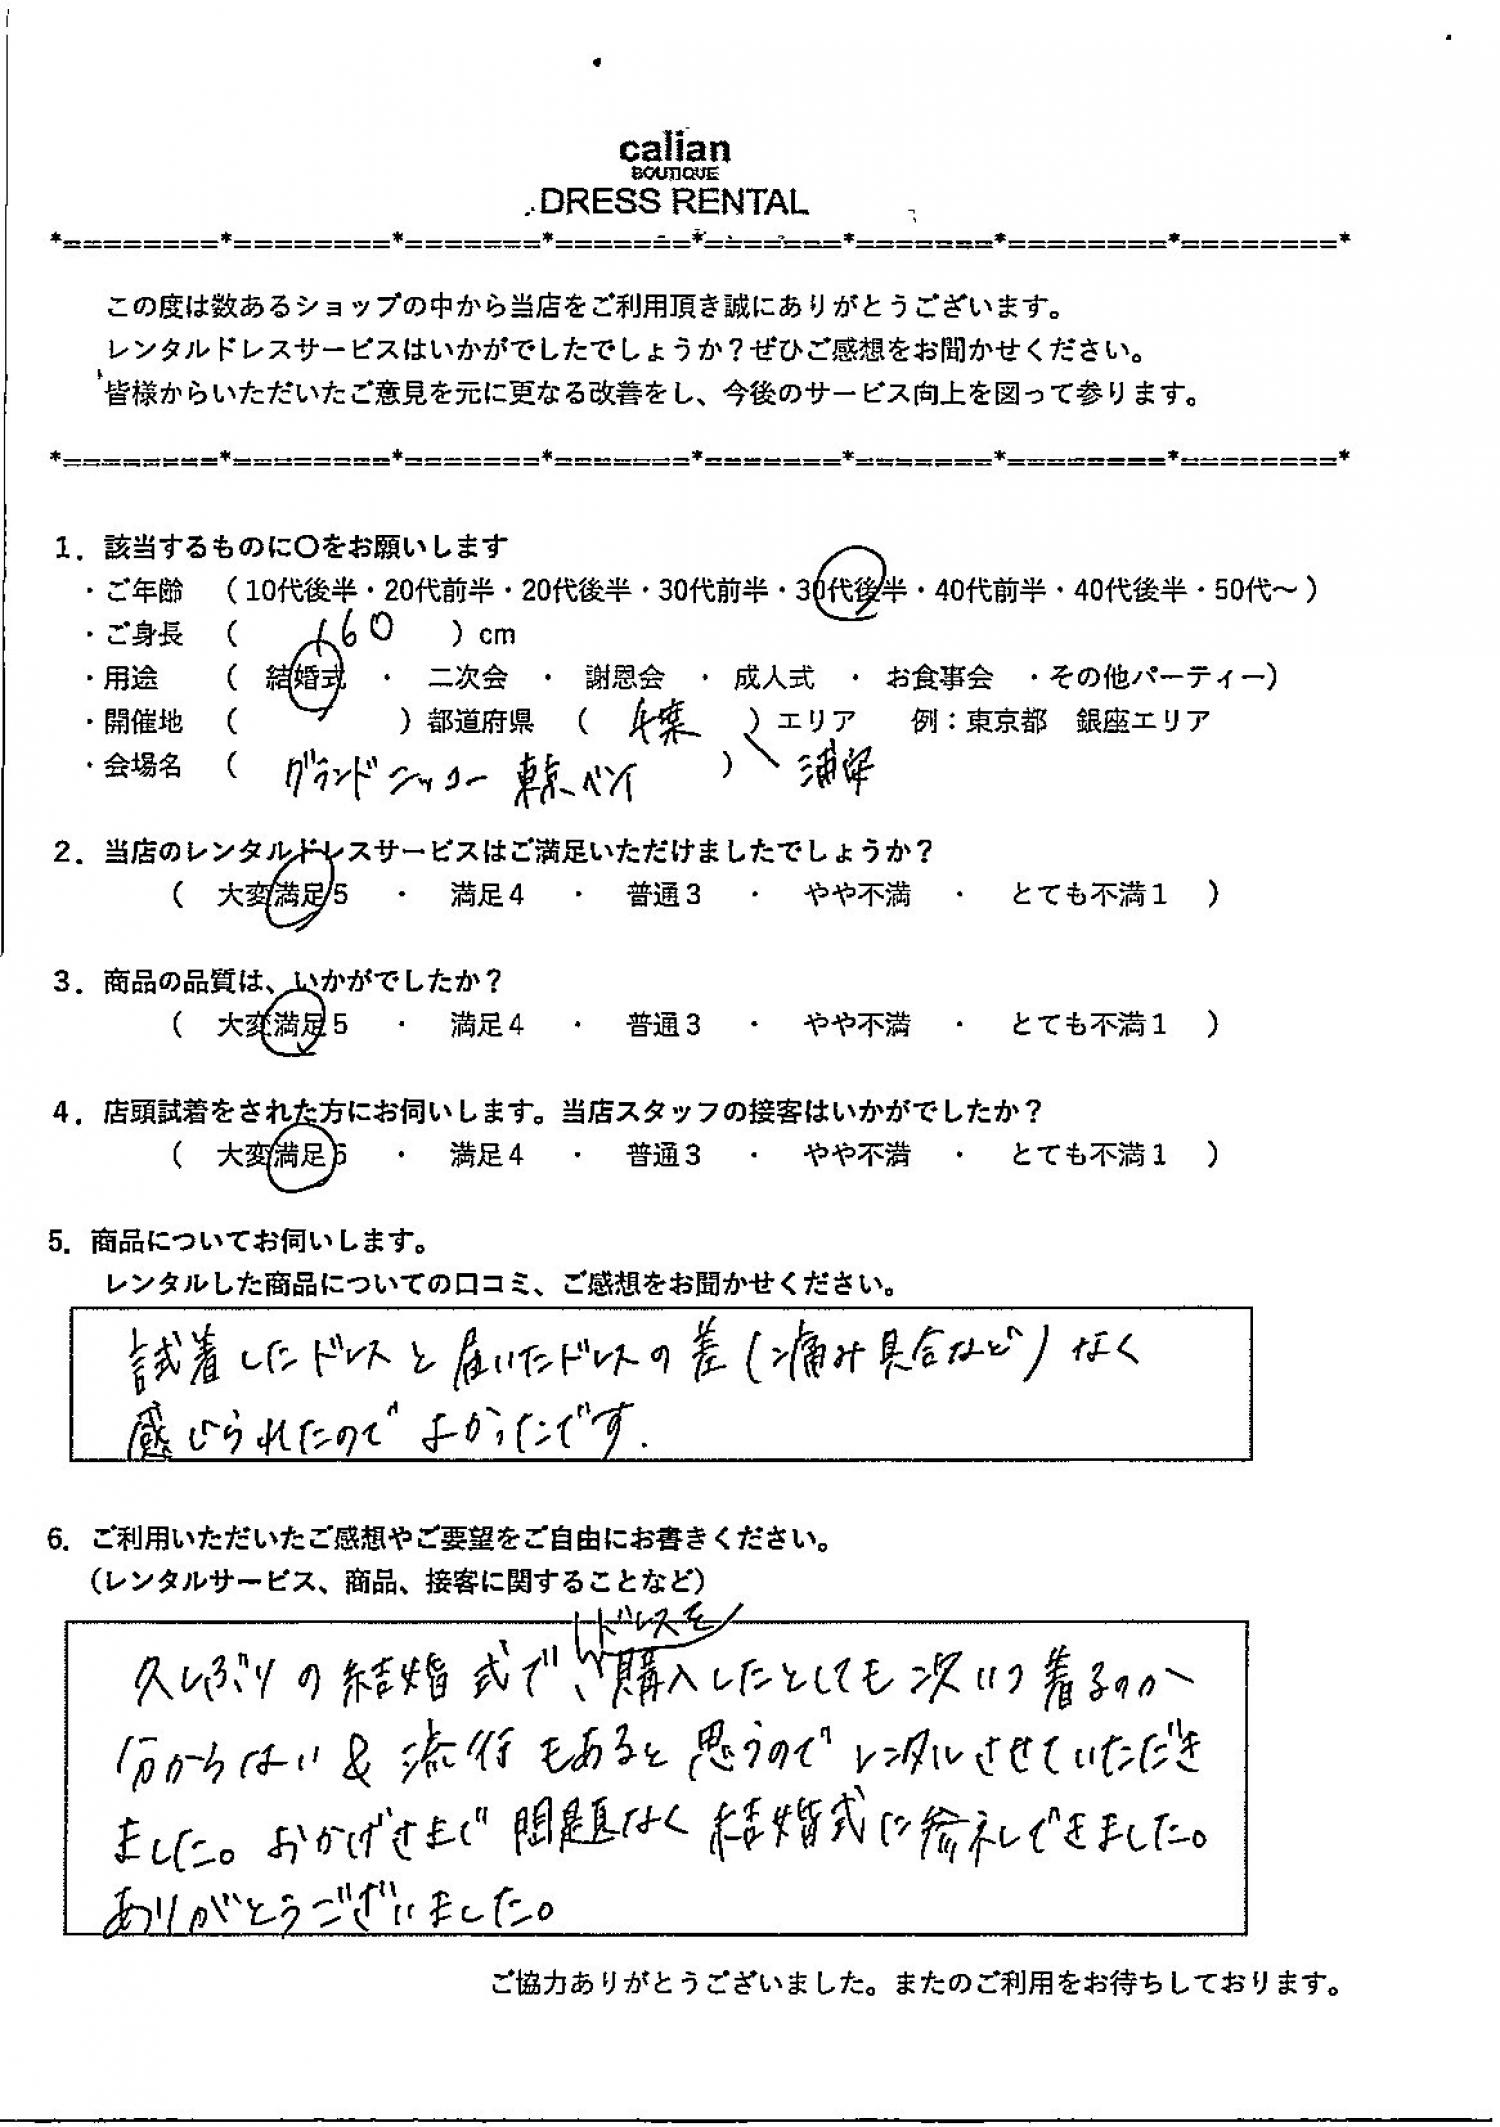 calian
BOUTIQUE
DRESS RENTAL
*========*========*=======*=======*=======*=======*========*========*
この度は数あるショップの中から当店をご利用頂き誠にありがとうございます。
レンタルドレスサービスはいかがでしたでしょうか？ぜひご感想をお聞かせください。
皆様からいただいたご意見を元に更なる改善をし、今後のサービス向上を図って参ります。
*========*========*=======*=======*=======*=======*========*========*
1．該当するものに〇をお願いします
・ご年齢 （10代後半・20代前半・20代後半・30代前半・30代後半・40代前半・40代後半・50代～）
・ご身長 （ 160 ）cm
・用途 （ 結婚式 ・ 二次会 ・ 謝恩会 ・ 成人式 ・ お食事会 ・その他パーティー）
・開催地 （ ）都道府県 （ 千葉 ）エリア 例：東京都 銀座エリア
・会場名 （ グランドニッコー 東京ベイ ） 浦安
2．当店のレンタルドレスサービスはご満足いただけましたでしょうか？
（ 大変満足5 ・ 満足4 ・ 普通3 ・ やや不満 ・ とても不満1 ）
3．商品の品質は、いかがでしたか？
（ 大変満足5 ・ 満足4 ・ 普通3 ・ やや不満 ・ とても不満1 ）
4．店頭試着をされた方にお伺いします。当店スタッフの接客はいかがでしたか？
（ 大変満足5 ・ 満足4 ・ 普通3 ・ やや不満 ・ とても不満1 ）
5．商品についてお伺いします。
レンタルした商品についての口コミ、ご感想をお聞かせください。
試着したドレスと届いたドレスの差（痛み具合など）なく
感じられたのでよかったです.
6．ご利用いただいたご感想やご要望をご自由にお書きください。
（レンタルサービス、商品、接客に関することなど）
ドレスを
久しぶりの結婚式で、購入したとしても次いつ着るのか
分からない＆流行もあると思うのでレンタルさせていただき
ました。おかげさまで問題なく結婚式に参列できました。
ありがとうございました。
ご協力ありがとうございました。またのご利用をお待ちしております。